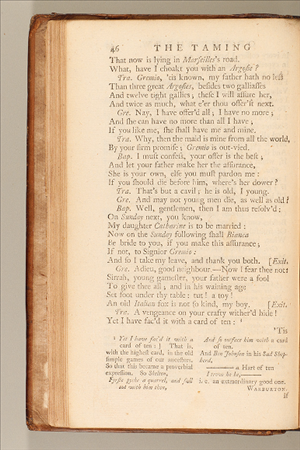 46 THE TAMING
That now is lying in Marseilles's road.
What, have I choakt you with an Argosie?
Tra. Gremio, 'tis known, my father hath no less
Than three great Argosies, besides two galliasses
And twelve tight gallies; these I will assure her,
And twice as much, what e'er thou offer'st next.
Gre. Nay, I have offer'd all; I have no more;
And she can have no more than all I have;
If you like me, she shall have me and mine.
Tra. Why, then the maid is mine from all the world,
By your firm promise; Gremio is out-vied.
Bap. I must confess, your offer is the best;
And let your father make her the assurance,
She is your own, else you must pardon me:
If you should die before him, where's her dower?
Tra. That's but a cavil; he is old, I young.
Gre. And may not young men die, as well as old?
Bap. Well, gentlemen, then I am thus resolv'd;
On Sunday next, you know,
My daughter Catharine is to be married:
Now on the Sunday following shall Bianca
Be bride to you, if you make this assurance;
If not, to Signior Gremio:
And so I take my leave, and thank you both. [Exit.
Gre. Adieu, good neighbour.—Now I fear thee not:
Sirrah, young gamester, your father were a fool
To give thee all; and in his waining age
Set foot under thy table: tut! a toy!
An old Italian fox is not so kind, my boy. [Exit.
Tra. A vengeance on your crafty wither'd hide!
Yet I have fac'd it with a card of ten: ¹
'Tis
¹ Yet I have fac'd it with a
card of ten:] That is,
with the highest card, in the old
simple games of our ancestors.
So that this became a proverbial
expression. So Skelton,
Fyrste pycke a quarrel, and fall
out with him then,
And so outface him with a card
of ten.
And Ben Johnson in his Sad Shep-
herd,
a Hart of ten
I trow he be,
i. e. an extraordinary good one.
WARBURTON.
If